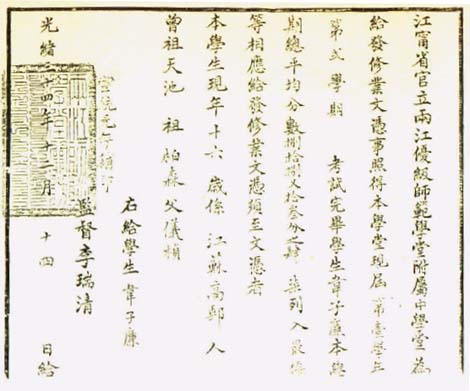 江甯省官立兩江優級師範學堂附屬中學堂為
給發修業文憑事照得本學堂現屆第壹學年
第弍學期 考試完畢學生韋子廉本學
期總平均分數捌拾捌又拾叁分之肆 列入最優
等相應給發修業文憑須至文憑者
本學生現年十六歲係江蘇高郵人
曾祖天池 祖柏森父儀楨
右給學生韋子廉
監督李瑞清
光緒三十四年十二月 十四 日給